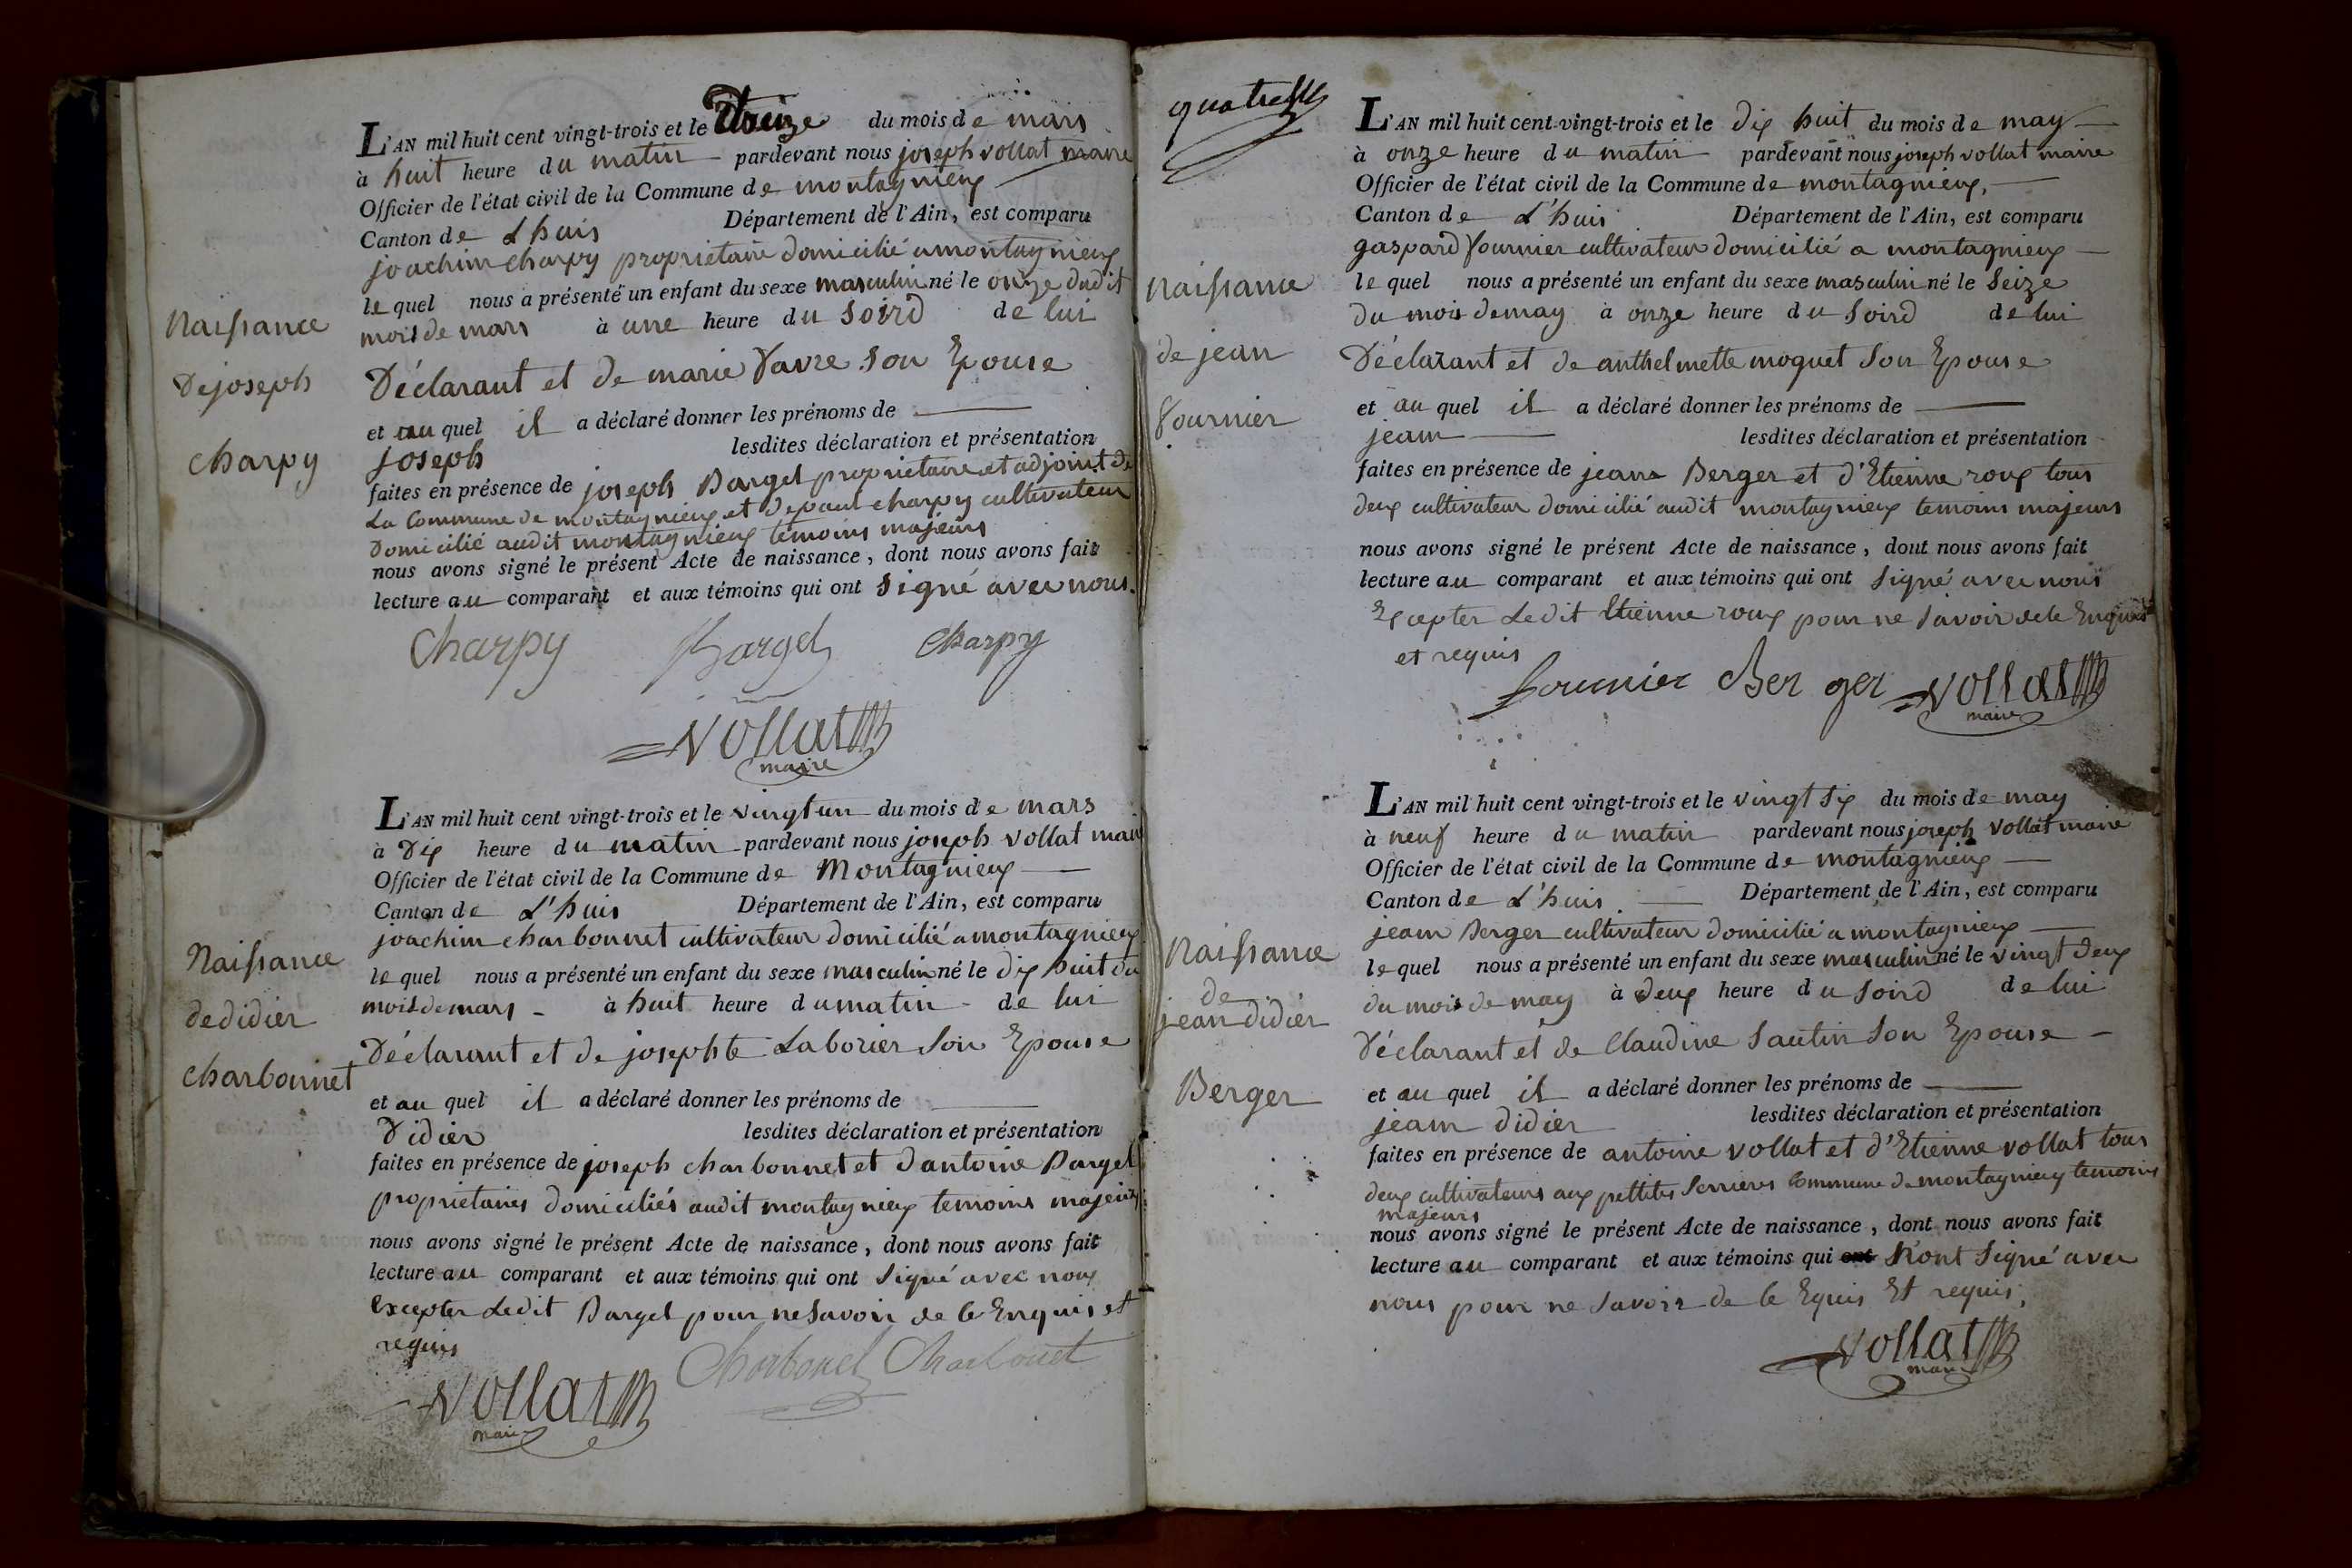 L'AN mil huit cent vingt-trois et le treize du mois de mars
à huit heure du matin pardevant nous joseph vollat maire
Officier de l'état civil de la Commune de montagnieux
Canton de L'huis Département de l'Ain, est comparu
joachim charpy proprietaire domicilié a montagnieux
le quel nous a présenté un enfant du sexe masculin né le onze dudit
mois de mars à une heure du soird de lui
Déclarant et de marie favre son Epouse
et au quel il a déclaré donner les prénoms de
joseph lesdites déclaration et présentation
faites en présence de joseph Bargel proprietaire et adjoint de
La Commune de montagnieux et de paul charpy cultivateur
Domicilié audit montagnieux temoins majeurs
nous avons signé le présent Acte de naissance, dont nous avons fait
lecture au comparant et aux témoins qui ont signé avec nous.
Charpy Bargel Charpy
vollat
maire
Naissance
De joseph
charpy
L'AN mil huit cent vingt-trois et le vingt un du mois de mars
à Dix heure du matin pardevant nous joseph vollat mair
Officier de l'état civil de la Commune de Montagnieux
Canton de L'huis Département de l'Ain, est comparu
joachim charbonnet cultivateur domicilié a montagnieux
le quel nous a présenté un enfant du sexe masculin né le dix huit du
mois de mars à huit heure du matin de lui
Déclarant et de josephte Laborier son Epouse
et au quel il a déclaré donner les prénoms de
Didier lesdites déclaration et présentation
faites en présence de joseph charbonnet et d'antoine Bargel
proprietaires domiciliés audit montagnieux temoins majeurs
nous avons signé le présent Acte de naissance, dont nous avons fait
lecture au comparant et aux témoins qui ont signé avec nous
excepter Ledit Bargel pour ne savoir de le Enquis et
requis
Charbonel Charbonet
vollat
maire
Naissance
de didier
charbonnet
quatre
L'AN mil huit cent vingt-trois et le dix huit du mois de may
à onze heure du matin pardevant nous joseph vollat maire
Officier de l'état civil de la Commune de montagnieux,
Canton de L'huis Département de l'Ain, est comparu
gaspard fournier cultivateur domicilié a montagnieux
le quel nous a présenté un enfant du sexe masculin né le seize
du mois de may à onze heure du soird de lui
Déclarant et de anthelmette moquet son Epouse
et au quel il a déclaré donner les prénoms de
jean lesdites déclaration et présentation
faites en présence de jean Berger et d'Etienne roux tous
deux cultivateur domicilié audit montagnieux temoins majeurs
nous avons signé le présent Acte de naissance, dont nous avons fait
lecture au comparant et aux témoins qui ont signé avec nous
Excepter Ledit Etienne roux pour ne savoir de le Enquis
et requis
fournier Ber ger vollat
maire
naissance
de jean
fournier
L'AN mil huit cent vingt-trois et le vingt six du mois de may
à neuf heure du matin pardevant nous joseph vollat maire
Officier de l'état civil de la Commune de montagnieux
Canton de L'huis Département de l'Ain, est comparu
jean Berger cultivateur domicilié a montagnieux
le quel nous a présenté un enfant du sexe masculin né le vingt deux
du mois de may à deux heure du soird de lui
Déclarant et de Claudine Sautin son Epouse
et au quel il a déclaré donner les prénoms de
jean didier lesdites déclaration et présentation
faites en présence de antoine vollat et d'Etienne vollat tous
deux cultivateurs aux pettites Serrieres Commune de montagnieux temoins
majeurs
nous avons signé le présent Acte de naissance, dont nous avons fait
lecture au comparant et aux témoins qui ont N'ont signé avec
nous pour ne savoir de le Equis Et requis,
vollat
maire
Naissance
de
jean didier
Berger